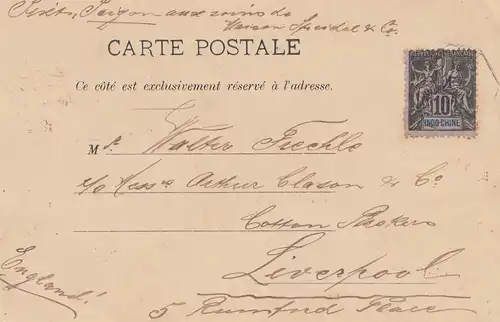 Saigon aux soins de
Maison Speidel & Co.
CARTE POSTALE
Ce côté est exclusivement réservé à l'adresse.
10
INDO-CHINE
Mr. Walter Frechlo
c/o Messrs Arthur Clason & Co
Cotton Brokers
Liverpool
England!
5 Rumford Place